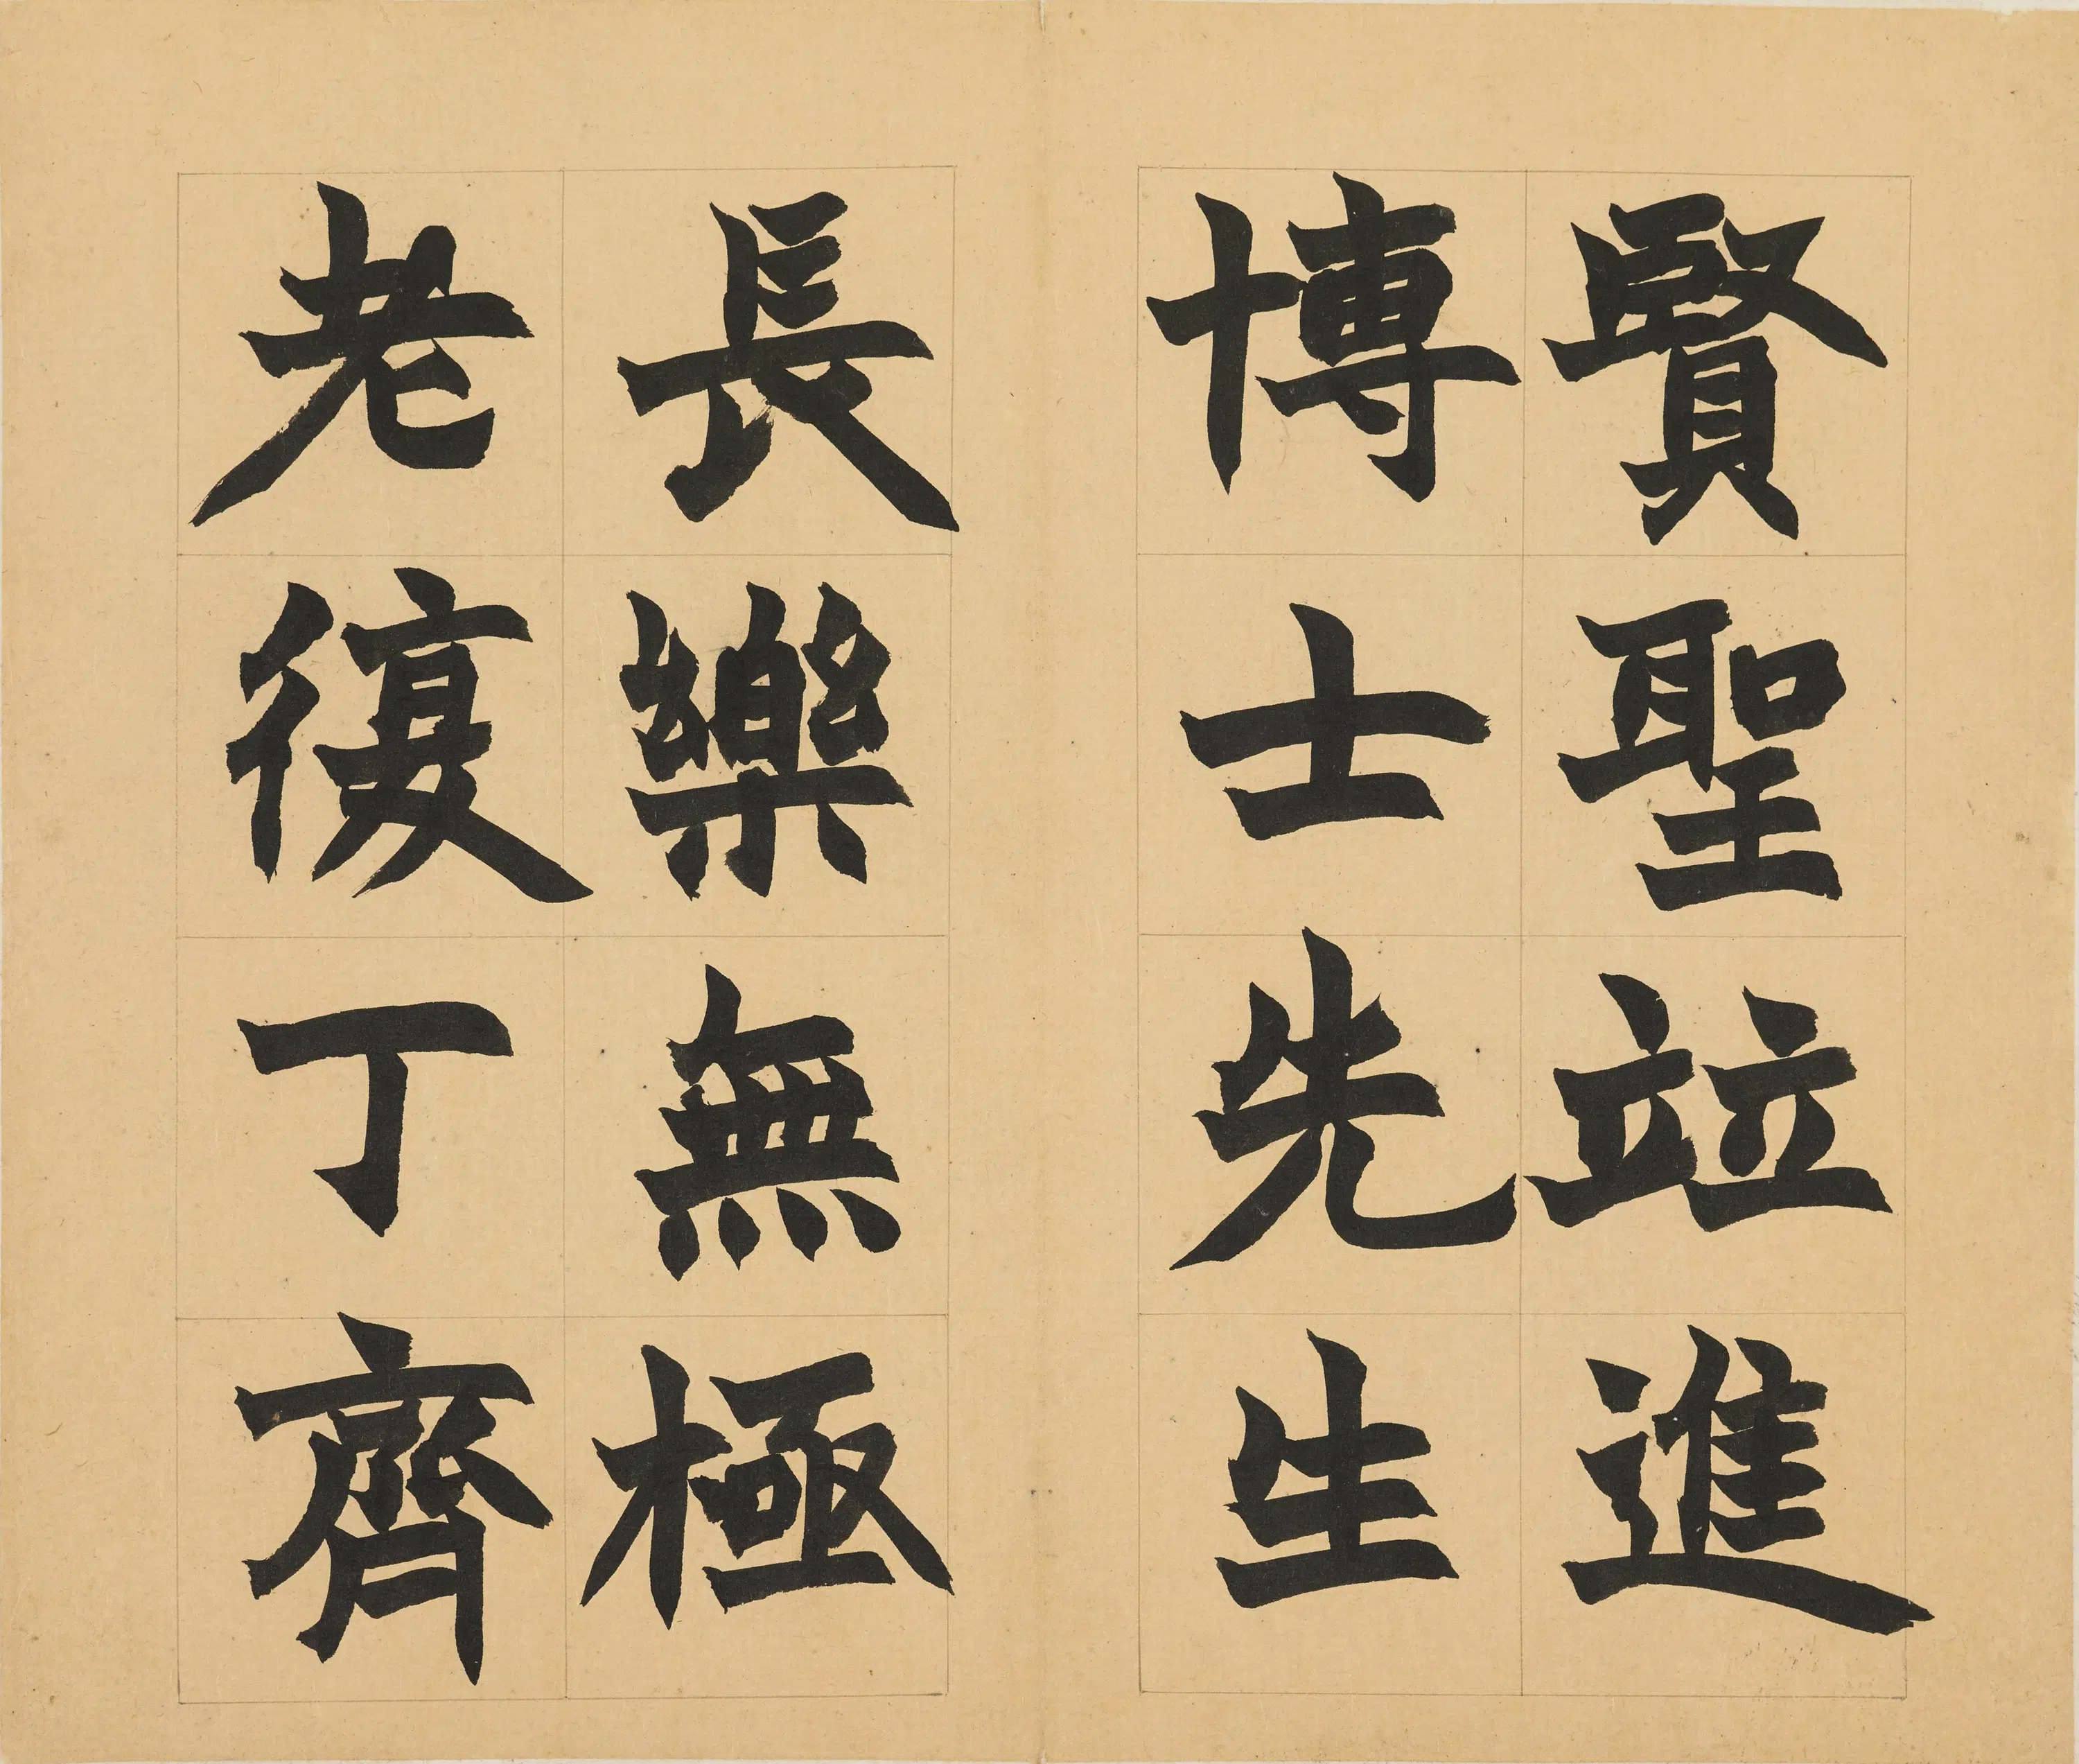 賢聖竝進
博士先生
長樂無極
老復丁齊